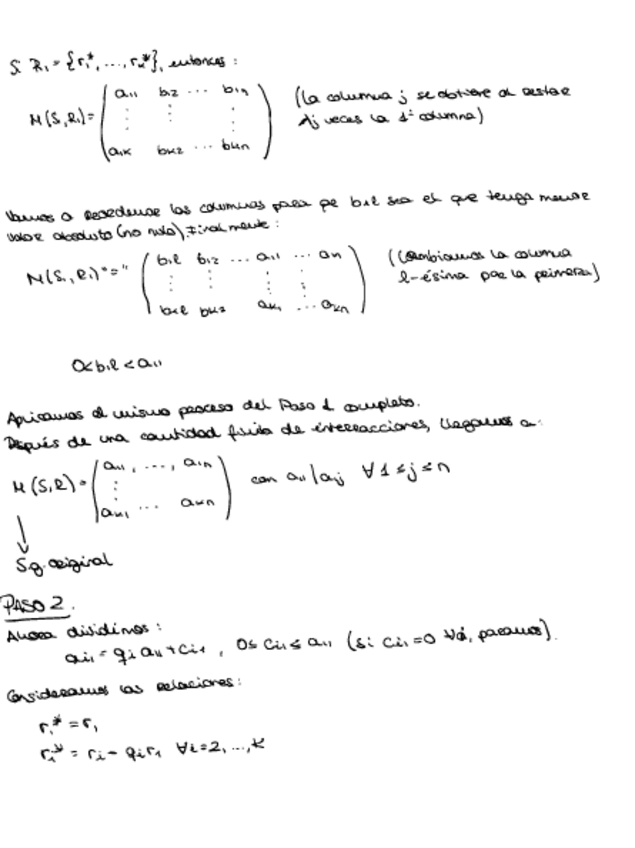 Si R₁ = {r₁*, ..., rₖ*}, entonces:
M(S,R₁) = ( a₁₁ b₁₂ ... b₁ₙ (la columna j se obtiene al restar
⋮ ⋮ ⋮ λj veces la 1ª columna)
a₁ₖ bₖ₂ ... bₖₙ )
Vamos a reordenar las columnas para que b₁ₗ sea el que tenga menor
valor absoluto (no nulo). Finalmente:
M(S₁, R₁) "=" ( b₁ₗ b₁₂ ... a₁₁ ... a₁ₙ (Cambiamos la columna
⋮ ⋮ ⋮ ⋮ l-ésima por la primera)
bₖₗ bₖ₂ aₖ₁ ... aₖₙ )
0 < b₁ₗ < a₁₁
Aplicamos el mismo proceso del Paso 1 completo.
Después de una cantidad finita de interacciones, llegamos a:
M(S,R) = ( a₁₁, ..., a₁ₙ con a₁₁ | a₁j ∀ 1 ≤ j ≤ n
⋮
aₖ₁ ... aₖₙ )
↓
S g. original
PASO 2.
Ahora dividimos:
aᵢ₁ = qᵢ a₁₁ + cᵢ₁, 0 ≤ cᵢ₁ ≤ a₁₁ (si cᵢ₁ = 0 ∀i, paramos).
Consideramos las relaciones:
r₁* = r₁
rᵢ* = rᵢ - qᵢr₁ ∀i = 2, ..., k